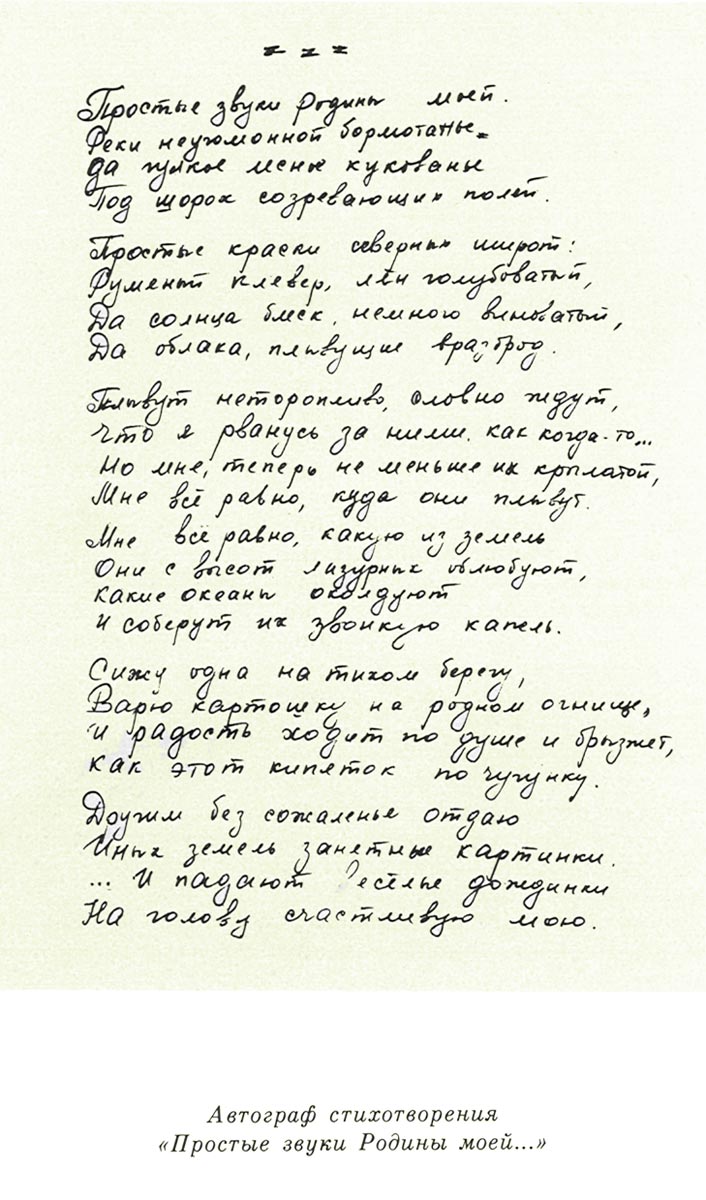 * * *
Простые звуки Родины моей.
Реки неугомонной бормотанье.
да гулкое лесное кукованье
Под шорох созревающих полей.
Простые краски северных широт:
Румяный клевер, лён голубоватый,
Да солнца блеск, немного виноватый,
Да облака, плывущие вразброд.
Плывут неторопливо, словно ждут,
Что я рванусь за ними, как когда-то...
Но мне, теперь не меньше их крылатой,
Мне всё равно, куда они плывут.
Мне всё равно, какую из земель
Они с высот лазурных облюбуют,
Какие океаны околдуют
И соберут их звонкую капель.
Сижу одна на тихом берегу,
Варю картошку на родном огнище,
И радость ходит по душе и брызжет,
Как этот кипяток по чугунку.
Другим без сожаленья отдаю
Иных земель занятные картинки.
... И падают весёлые дождинки
На голову счастливую мою.
Автограф стихотворения
«Простые звуки Родины моей...»